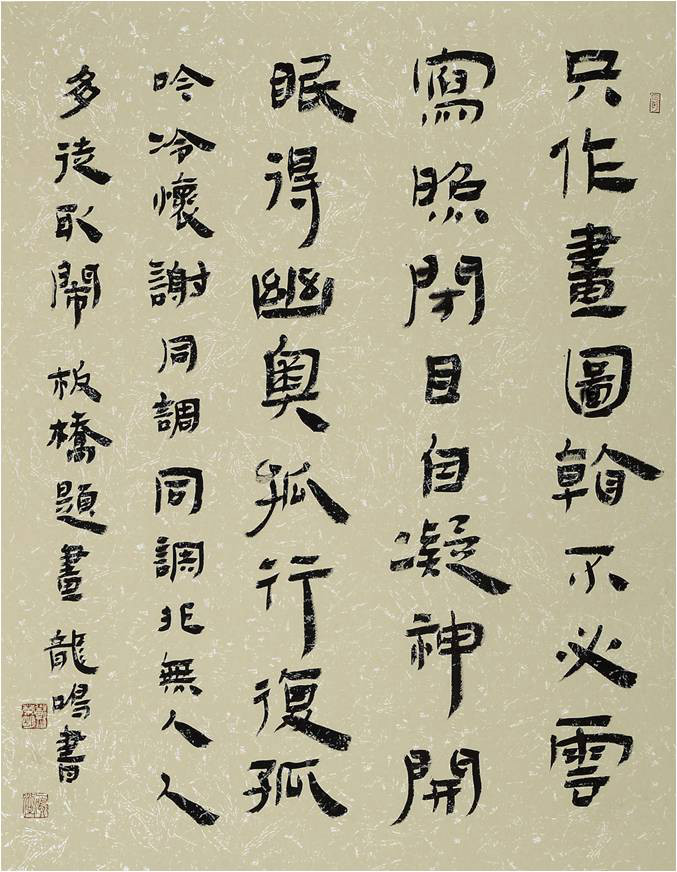 只作畫圖不必雲
寫照閉目自凝神開
眠得幽奧孤行復孤
吟冷懷謝同調同調非無人人
多徒取鬧 板橋題畫 龍鳴書